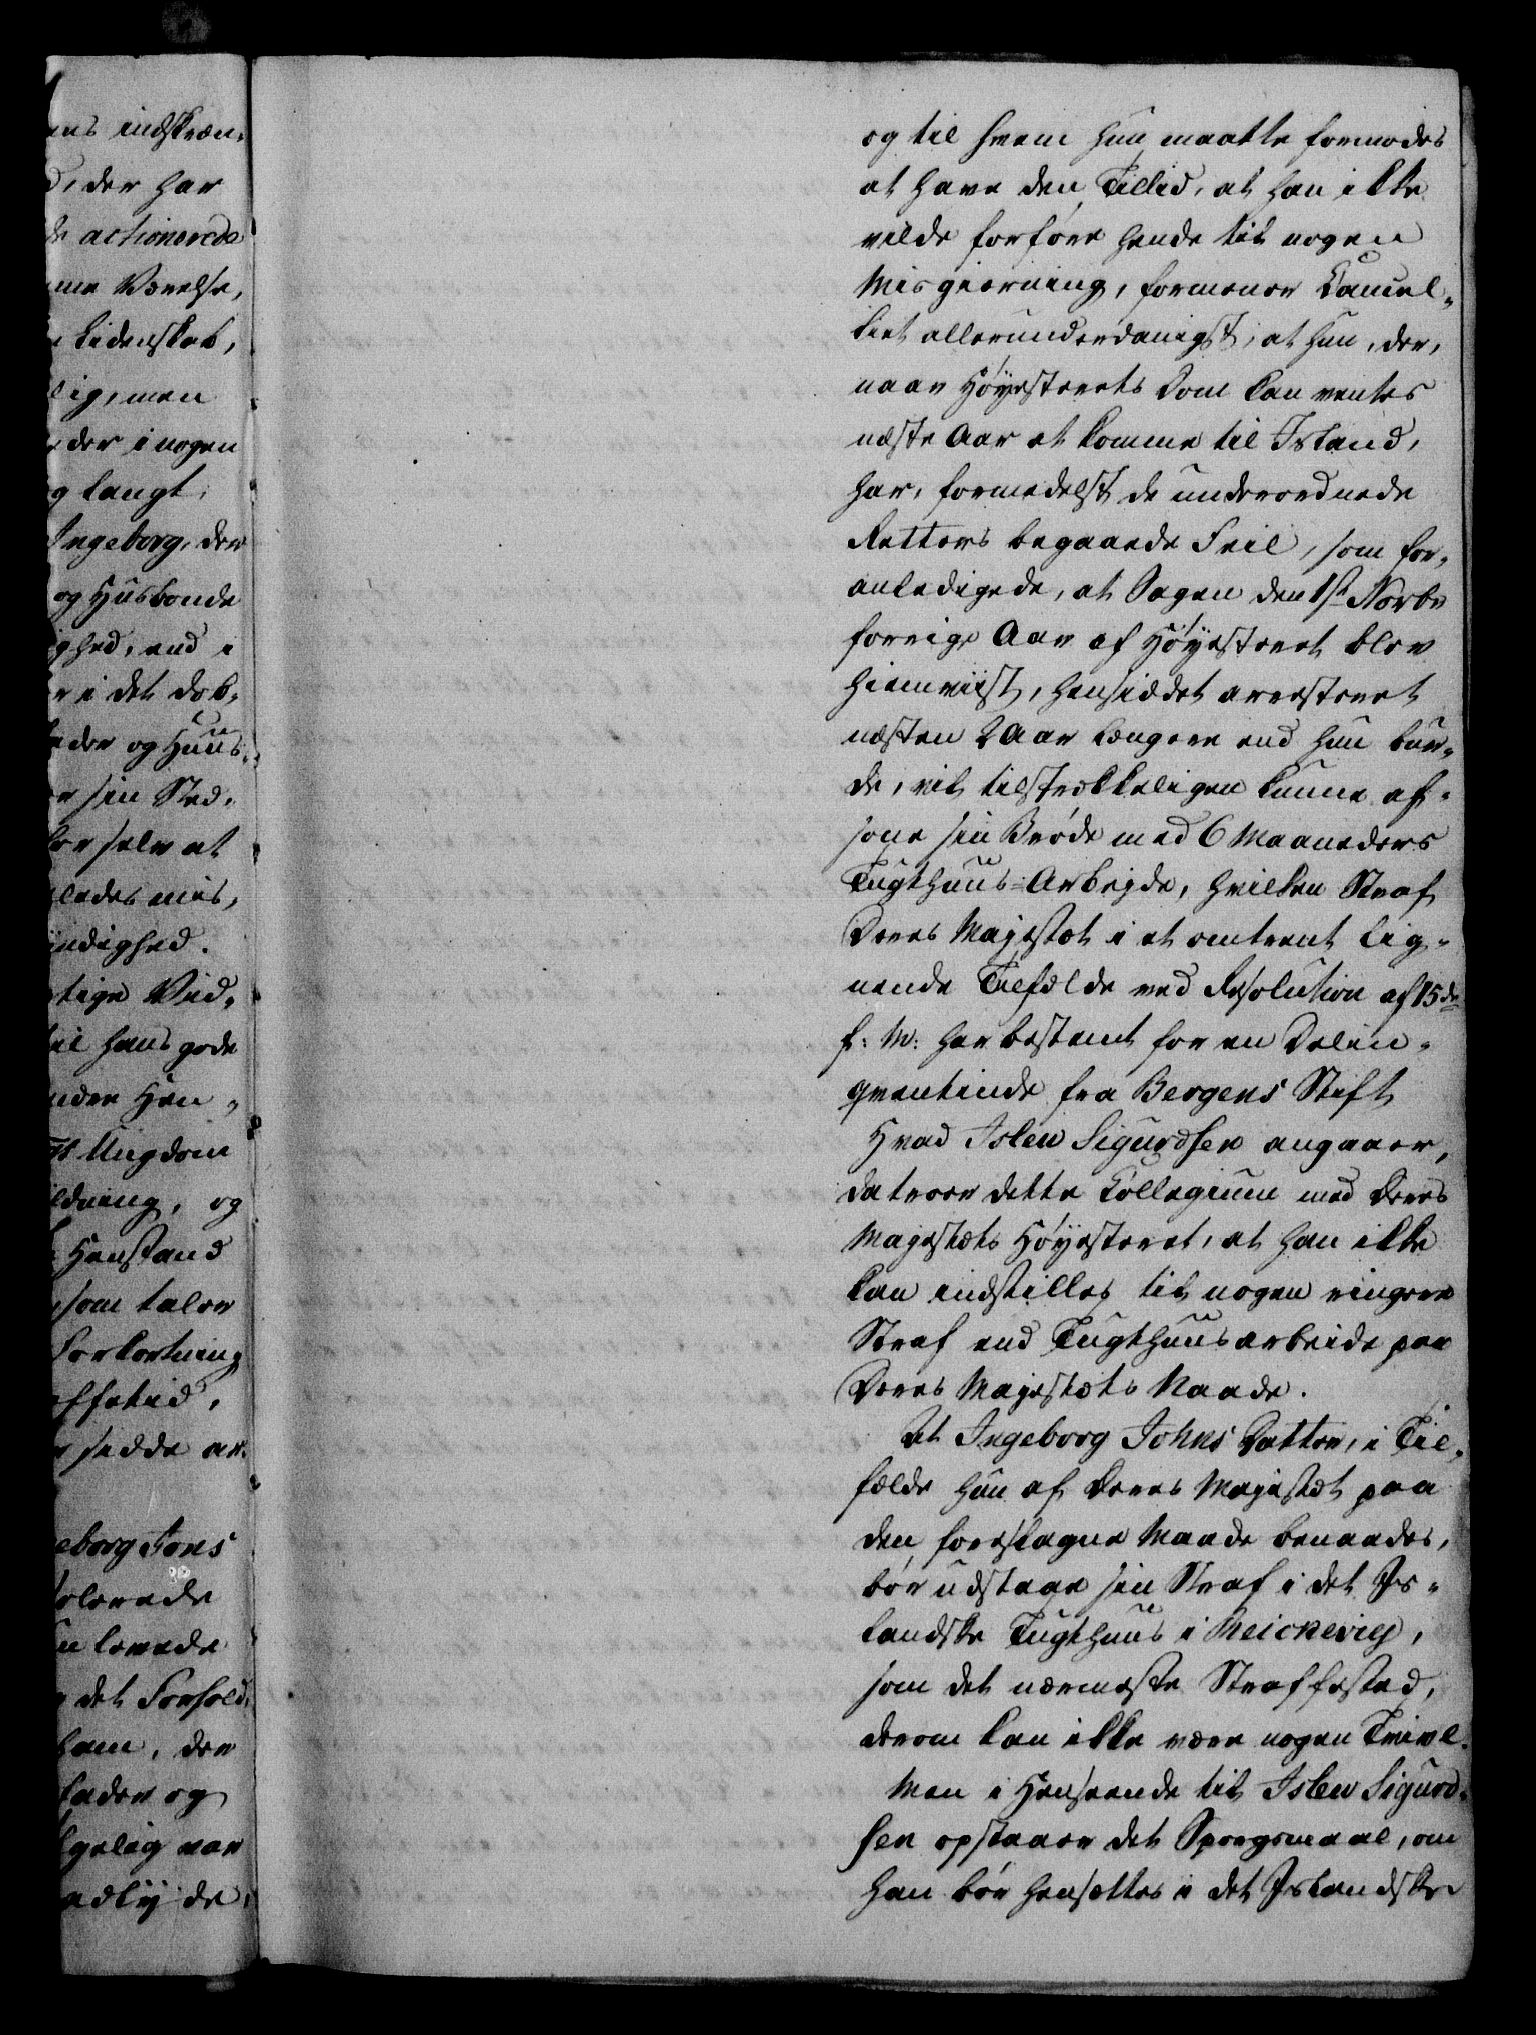 ens indskræn¬
d, der har
de actionerede
me Værelse,
Lidenskab,
lig, men
der i nogen
g langt
Ingeborg, der
og Huusbonde
ghed, end i
r i det dob¬
ader og Huus¬
r sin Sted¬
or selv at
ledes mis¬
yndighed.
tige Vid¬
til hans gode
nder Hen¬
Ungdom
ldning, og
Henstand
som taler
Forkortning
ffetid,
sidde ar¬
eborg Jons
olerede
n levede
det Forhold
ham, der
fader og
gelig var
adlyde
og til hvem hun maatte formodes
at have den Tillid, at han ikke
vilde forføre hende til nogen
Misgierning, formener Cancel¬
liet allerunderdanigst, at hun, der,
naar Høyesterets Dom kan ventes
næste Aar at komme til Island,
har, formedelst de underordnede
Retters begaaede Feil, som for¬
anledigede, at Sagen den 1ste Novbr
forrige Aar af Høyesteret blev
hiemviist, hensiddet arresteret
næsten 2 Aar længere end hun bur¬
de, vil tilstrækkeligen kunne af¬
sone sin Brøde med 6 Maaneders
Tugthuus-Arbejde, hvilken Straf
Deres Majestæt i et omtrent lig¬
nende Tilfælde ved Resolution af 15de
f: M: har bestemt for en Delin¬
qventinde fra Bergens Stift
Hvad Islev Sigurdsen angaaer,
da troer dette Collegium med Deres
Majestæts Høyesteret, at han ikke
kan indstilles til nogen ringere
Straf end Tugthuusarbeide paa
Deres Majestæts Naade.
At Ingeborg Johns Datter, i Til¬
fælde hun af Deres Majestæt paa
den foreslagne Maade benaades,
bør udstaae sin Straf i det Is¬
landske Tugthuus i Reickevig,
som det nærmeste Straffested,
derom kan ikke være nogen Tvivl.
Men i Henseende til Islev Sigurd¬
sen opstaaer det Spørgsmaal, om
han bør hensættes i det Islandske